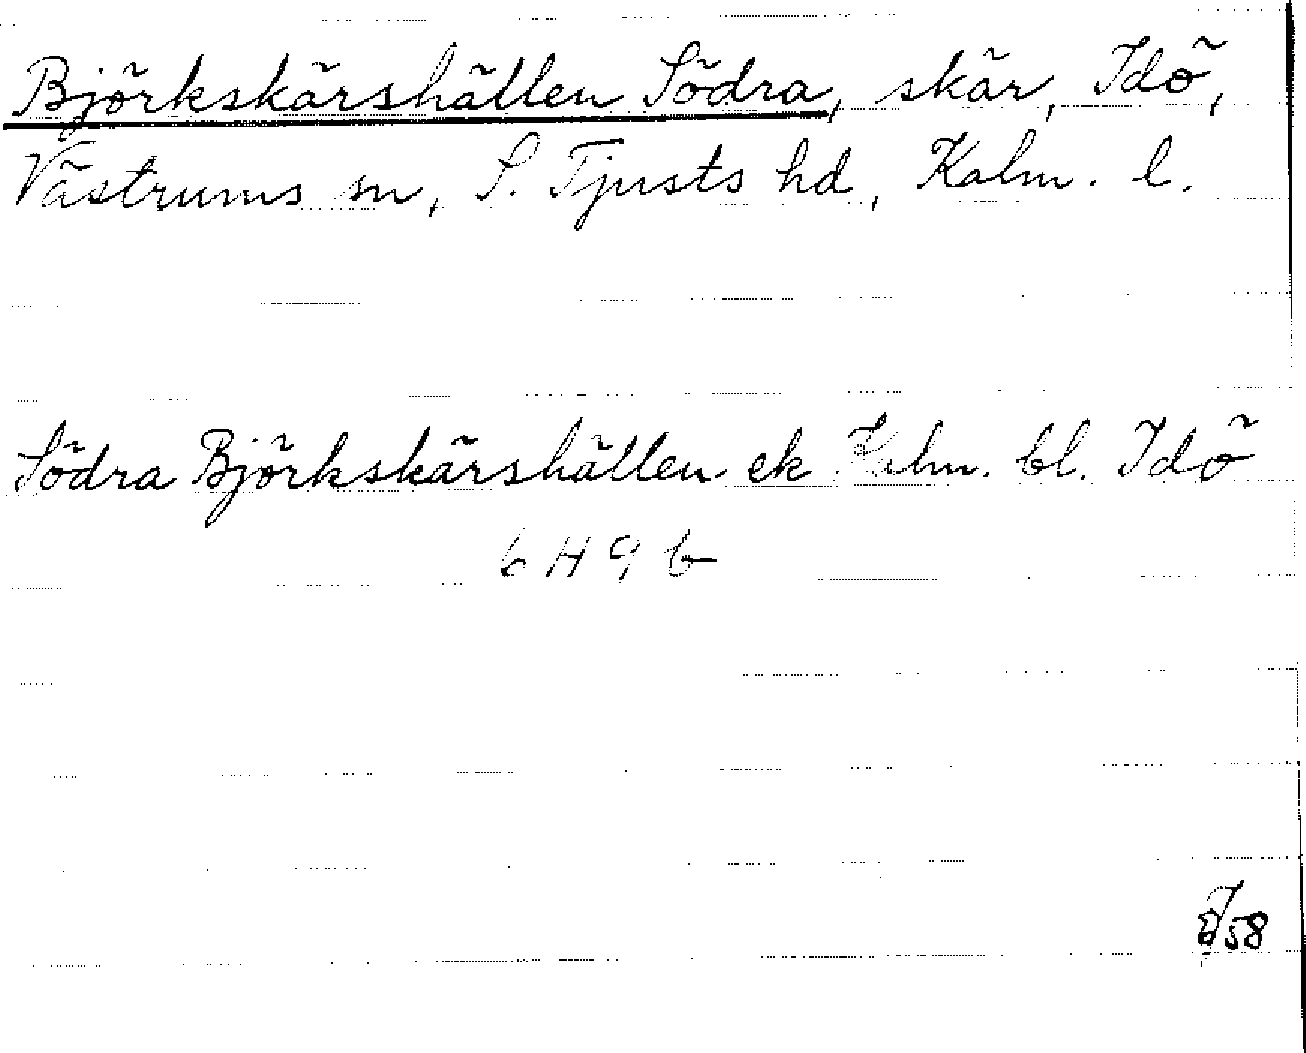 Björkskärshällen Södra, skär, Idö,
Västrums sn, S. Tjusts hd, Kalm. l.
Södra Björkskärshällen ek Kalm. bl. Idö
6 H 9 b
58